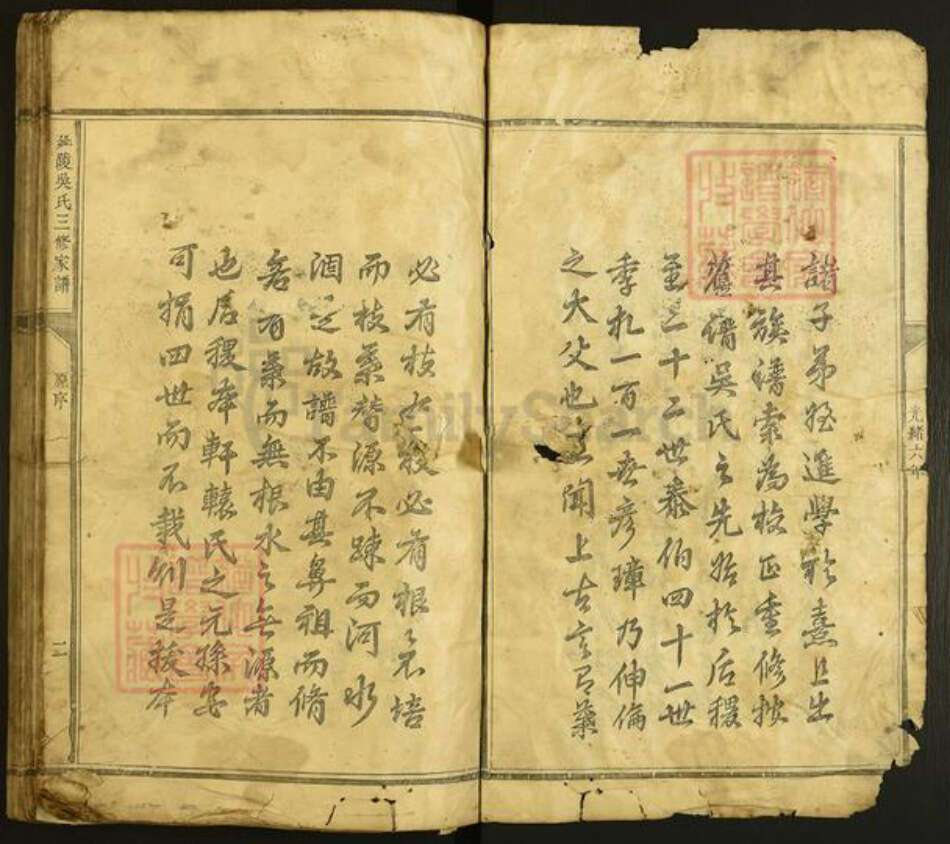 光緒六年
諸子弟姪進學於熹且出
其族譜索為校正重修按
舊譜吳氏之先始於后稷
至三十二世泰伯四十一世
季札一百一世彥璋乃伸倫
之大父也熹聞上古言有葉
必有枝有枝必有根不培
而枝葉替源不疎而河水
涸是故譜不由其鼻祖而脩
者有葉而無根水之無源者
也后稷本軒轅氏之元孫安
可捐四世而不載則是撥本
延陵吳氏三修家譜
原序
二
FamilySearch